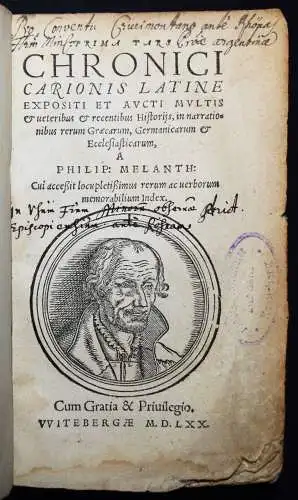 Conventu
PRIMA PARS
CHRONICI
CARIONIS LATINE
EXPOSITI ET AVCTI MVLTIS
& ueteribus & recentibus Historijs, in narratio-
nibus rerum Græcarum, Germanicarum &
Ecclesiasticarum,
A
PHILIP: MELANTH:
Cui accessit locupletissimus rerum ac uerborum
memorabilium Index.
Cum Gratia & Priuilegio.
VVITEBERGÆ M.D.LXX.